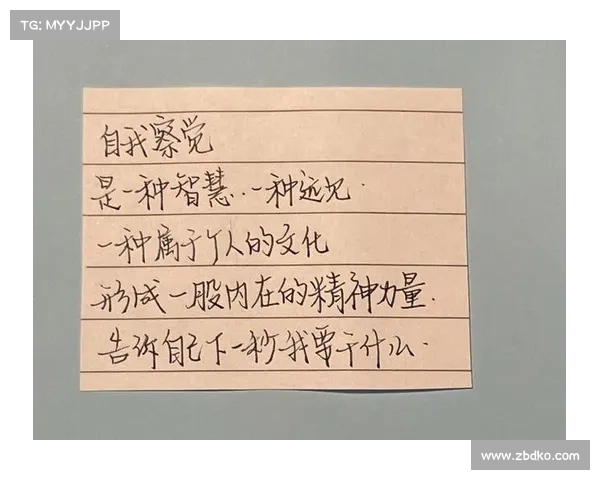 TG: MYYJJPP
自我察觉
是一种智慧..一种远见.
一种属于个人的文化
形成一股内在的精神力量.
告诉自己下一秒我要干什么.
www.zbdko.com